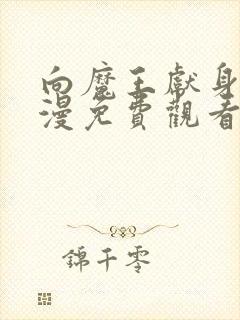 向魔王獻身
漫免費觀看
錦千零